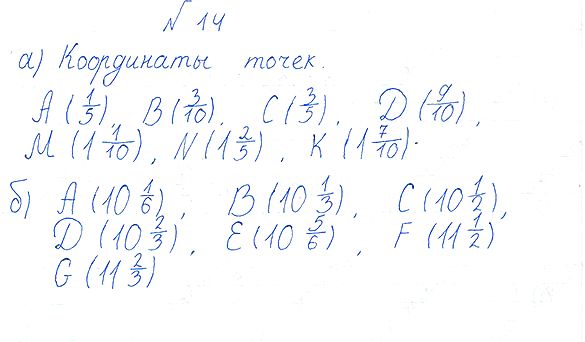 № 14
а) Координаты точек.
A (1/5), B (3/10), C (3/5), D (9/10),
M (1 1/10), N (1 2/5), K (1 7/10).
б) A (10 1/6), B (10 1/3), C (10 1/2),
D (10 2/3), E (10 5/6), F (11 1/2)
G (11 2/3)